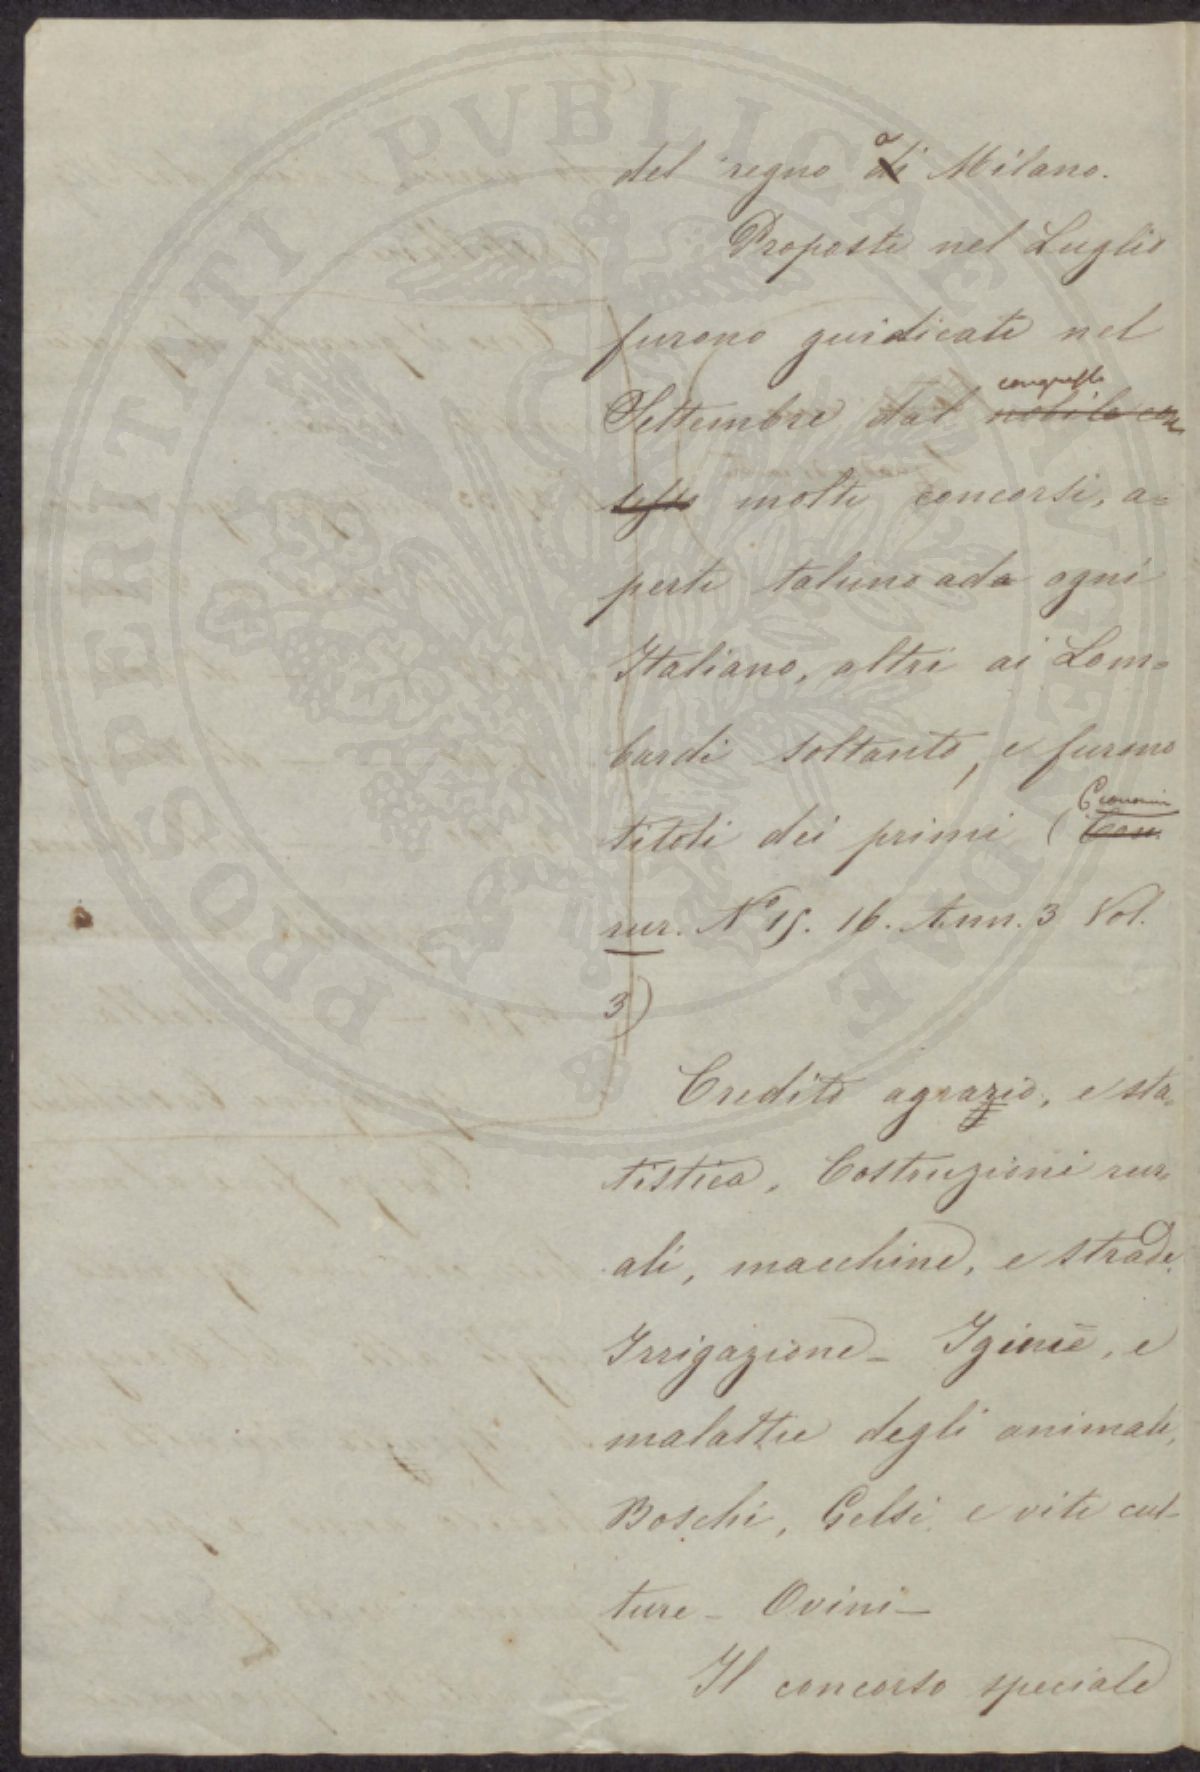 PROSPERITATI PVBLICAE AVGENDAE
del regno a di Milano.
Proposti nel Luglio
furono guidicati nel
congresso
Settembre dal nobile con
sesso molti concorsi, a=
perti taluno ada ogni
Italiano, altri ai Lom=
bardi soltanto, e furono
Economia
titoli dei primi ( Con.
rur. N° 15. 16. Ann. 3 Vol.
3)
Credito agrazio, e sta=
tistica, Costruzioni rur,
ali, macchine, e strade,
Irrigazione - Igiene, e
malattie degli animali,
Boschi, Gelsi, e viti cul-
ture - Ovini -
Il concorso speciale